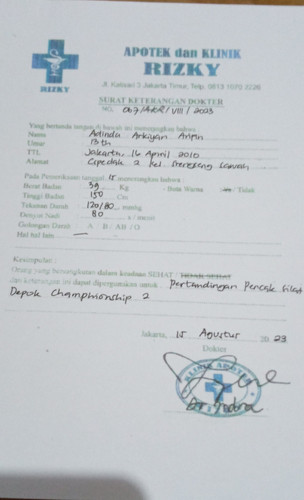 APOTEK dan KLINIK
RIZKY
RIZKY
Jl. Kalisari 3 Jakarta Timur, Telp. 0813 1970 3226
SURAT KETERANGAN DOKTER
NO. 067/ /VIII/2023
Yang bertanda tangan di bawah ini menerangkan bahwa :
Nama Adinda Arkiyan Aripin
Umur 13 th
TTL Jakarta, 16 April 2010
Alamat Cipedak 2 kel. Srengseng Sawah
Pada Pemeriksaan tanggal 15 menerangkan bahwa :
Berat Badan 39 Kg - Buta Warna : Ya / Tidak
Tinggi Badan 150 Cm
Tekanan Darah 120/80 mmhg
Denyut Nadi 80 x / menit
Golongan Darah A / B / AB / O
Hal hal lain —
Kesimpulan :
Orang yang bersangkutan dalam keadaan SEHAT / TIDAK SEHAT
dan keterangan ini dapat dipergunakan untuk : Pertandingan Pencak Silat
Depok Championship 2
Jakarta, 15 Agustus 2023
Dokter
KLINIK RIZKY